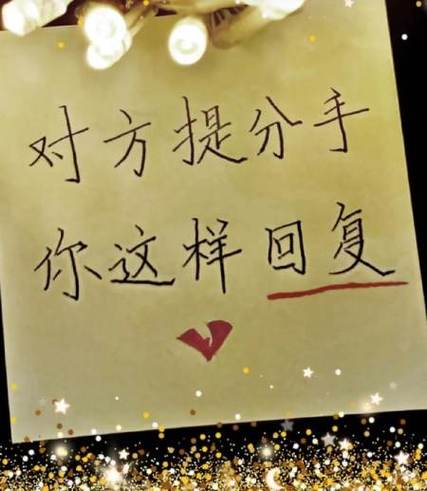 对方提分手
你这样回复